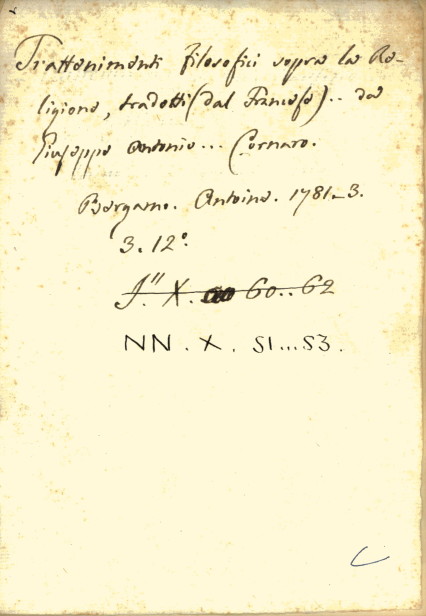 Trattenimenti filosofici sopra la Re-
ligione, tradotti (dal Francese).. da
Giuseppe Antonio... Cornaro.
Bergamo. Antoine. 1781-3.
3. 12°.
J" X. 60..62
NN. X. 51...53.